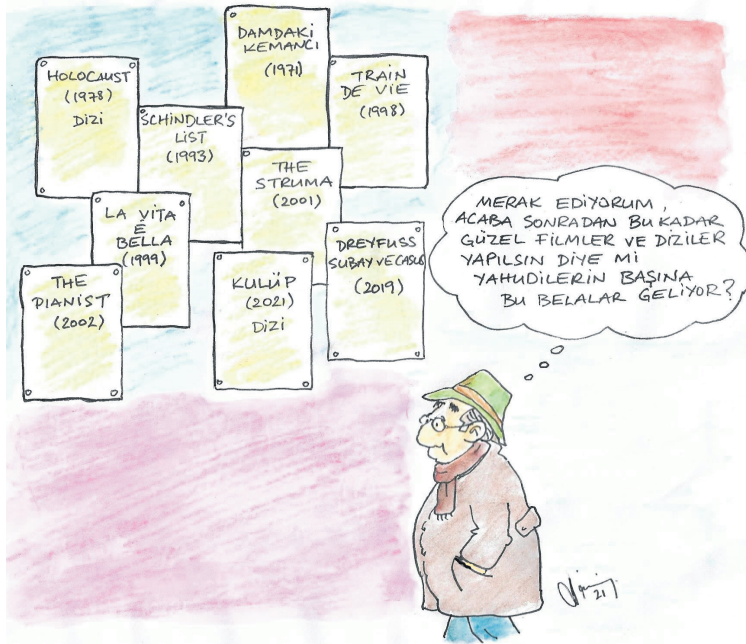 DAMDAKİ
KEMANCI
(1971)
HOLOCAUST
(1978)
DİZİ
TRAIN
DE VIE
(1998)
SCHINDLER'S
LİST
(1993)
THE
STRUMA
(2001)
LA VİTA
E
BELLA
(1999)
DREYFUSS
SUBAY VE CASUS
(2019)
THE
PIANIST
(2002)
KULÜP
(2021)
DİZİ
MERAK EDİYORUM,
ACABA SONRADAN BU KADAR
GÜZEL FİLMLER VE DİZİLER
YAPILSIN DİYE Mİ
YAHUDİLERİN BAŞINA
BU BELALAR GELİYOR?
21